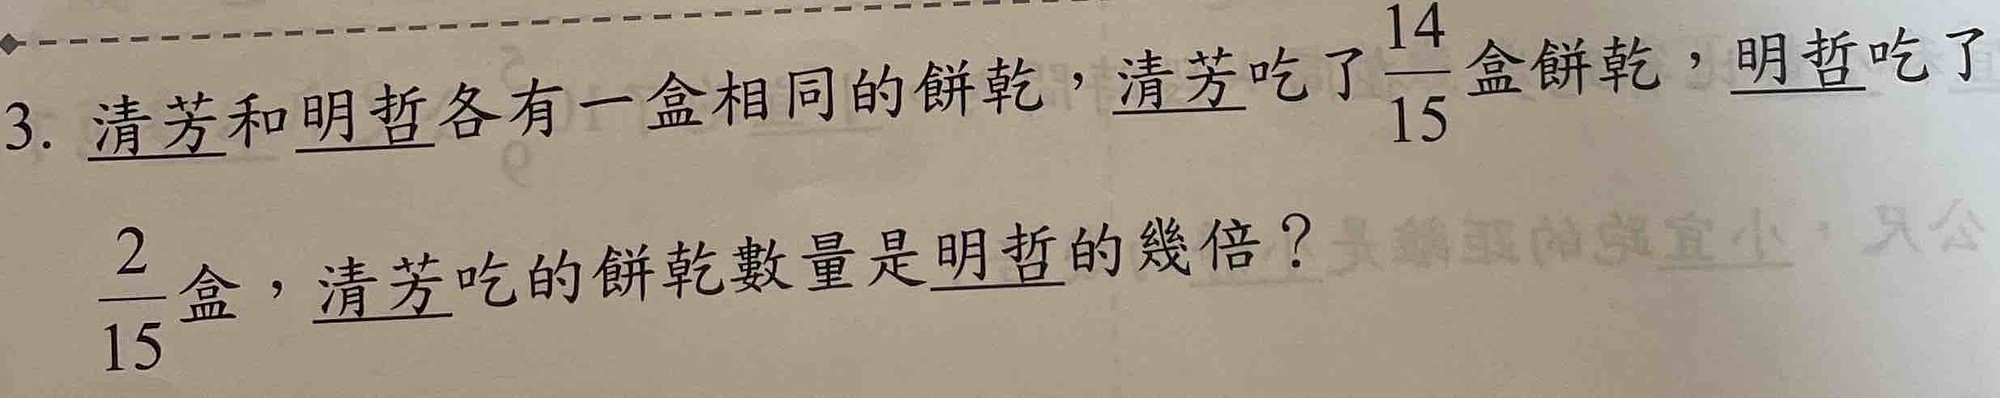 3. 清芳和明哲各有一盒相同的餅乾，清芳吃了14/15盒餅乾，明哲吃了
2/15盒，清芳吃的餅乾數量是明哲的幾倍？